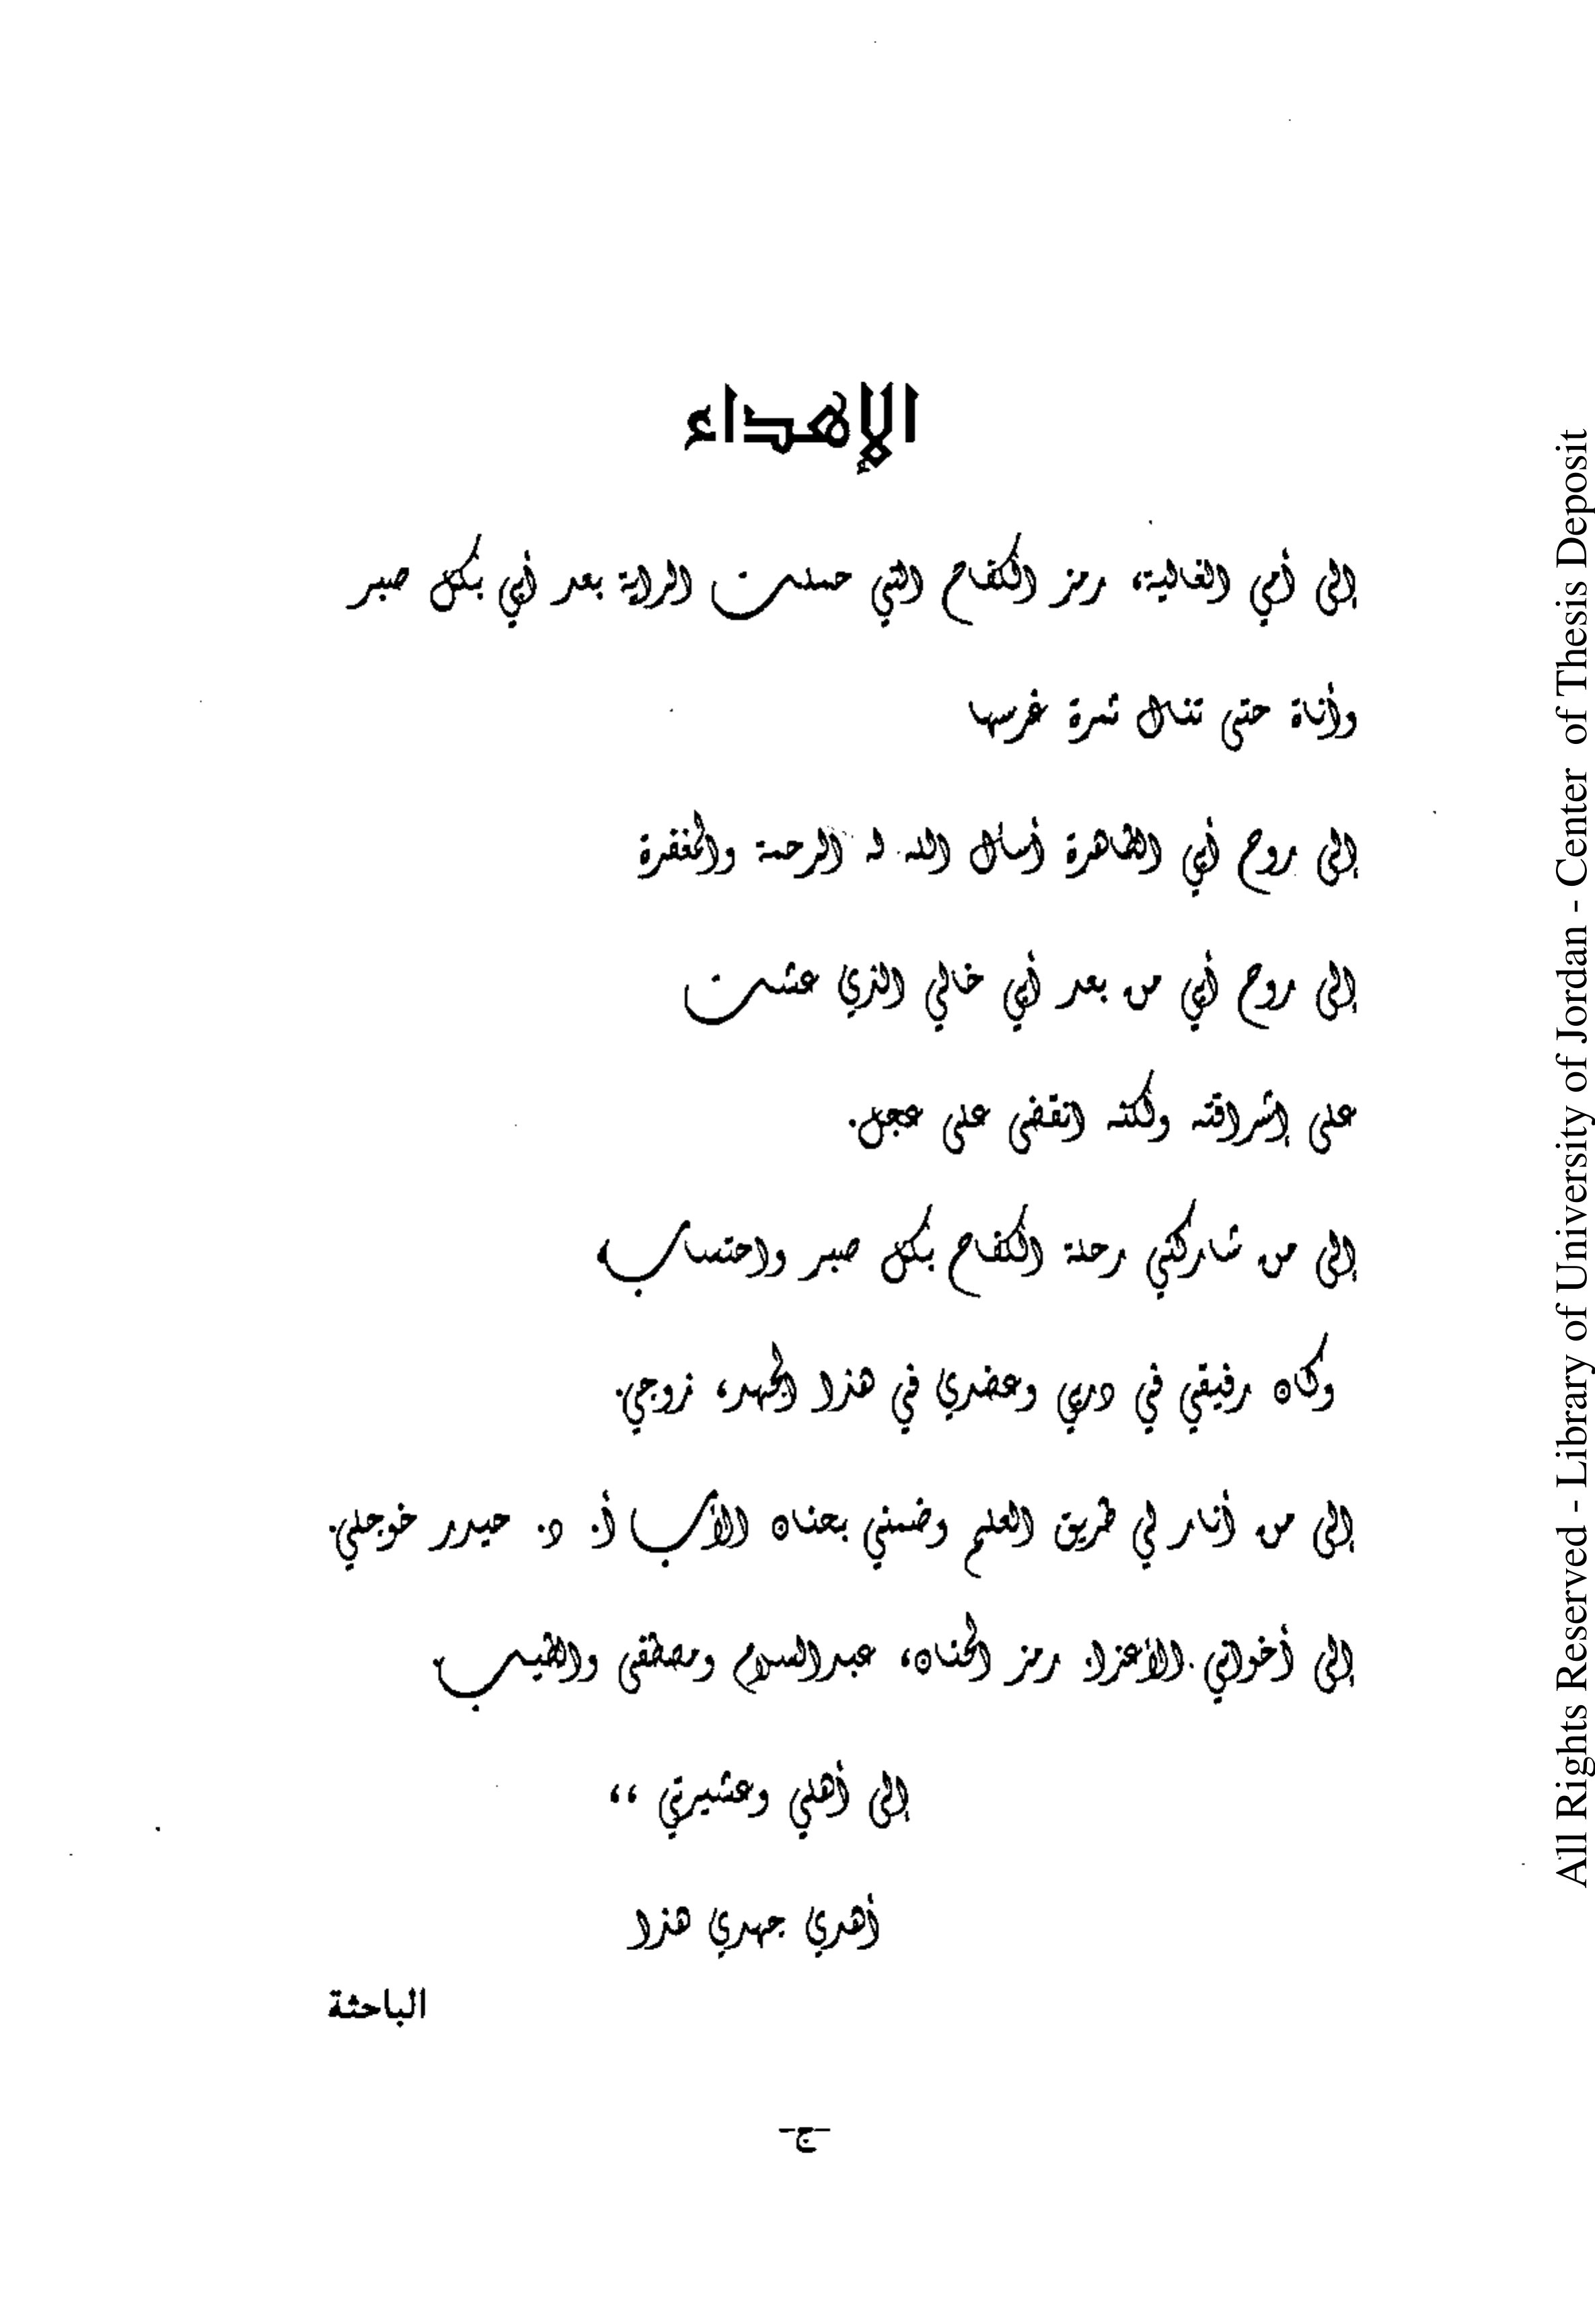 الإهداء
إلى أمي الغالية، رمز الكفاح التي حملت الراية بعد أبي بكل صبر
وأناة حتى تنال ثمرة غرسها
إلى روح أبي الطاهرة أسأل الله له الرحمة والمغفرة
إلى روح أبي من بعد أبي خالي الذي عشت
على إشراقته ولكنه انقضى على عجل.
إلى من شاركني رحلة الكفاح بكل صبر واحتساب،
وكان رفيقي في دربي وعضدي في هذا الجهد، زوجي.
إلى من أنار لي طريق العلم وضمني بحنان الأب أ. د. حيدر خوجلي.
إلى أخواني الأعزاء رمز الحنان، عبدالسلام ومصطفى والطيب
إلى أهلي وعشيرتي ،،
أهدي جهدي هذا
الباحثة
-ج-
All Rights Reserved - Library of University of Jordan - Center of Thesis Deposit